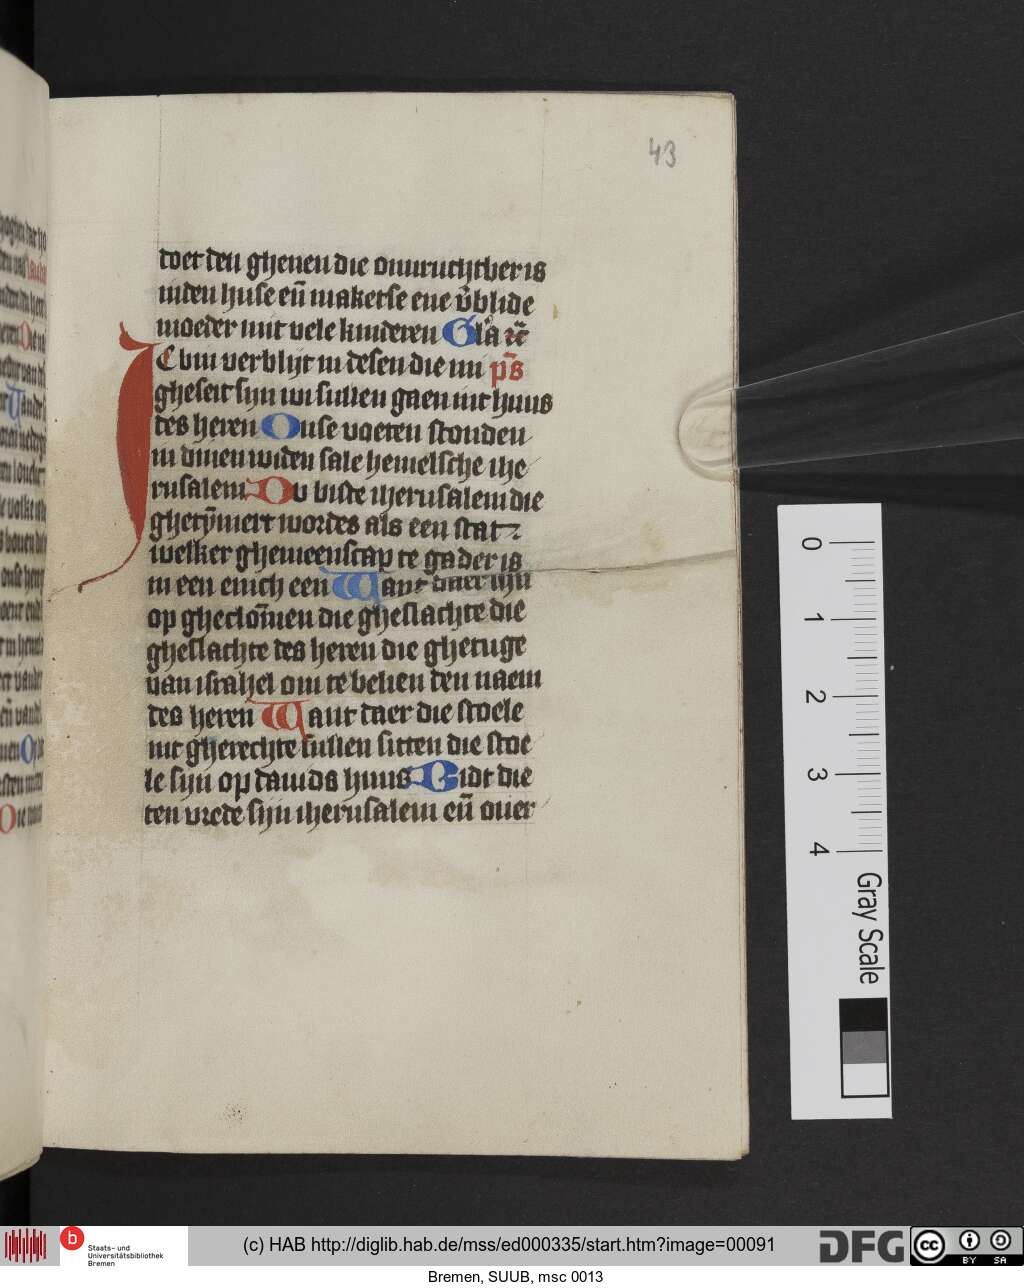 43
doet den ghenen die onvruchtber is
inden huse eñ maketse ene v̄blide
moeder mit vele kinderen Gl'a et̄
ICbin verblijt in desen die mi ps̄
gheseit sijn wi sullen gaen int huus
des heren Onse voeten stonden
in dinen widen sale hemelsche ihe
rusalem Du biste iherusalem die
ghetȳmert wordes als een stat
welker ghemeenscap te gader is
in een enich een Want daer sijn
op gheclom̄en die gheslachte die
gheslachte des heren die ghetuge
van israhel om te belien den naem
des heren Want daer die stoele
int gherechte sullen sitten die stoe
le sijn op dauids huus Bidt die
ten vrede sijn iherusalem eñ ouer
0
1
2
3
4
Gray Scale
b
Staats- und
Universitätsbibliothek
Bremen
(c) HAB http://diglib.hab.de/mss/ed000335/start.htm?image=00091
DFG
cc
BY SA
Bremen, SUUB, msc 0013